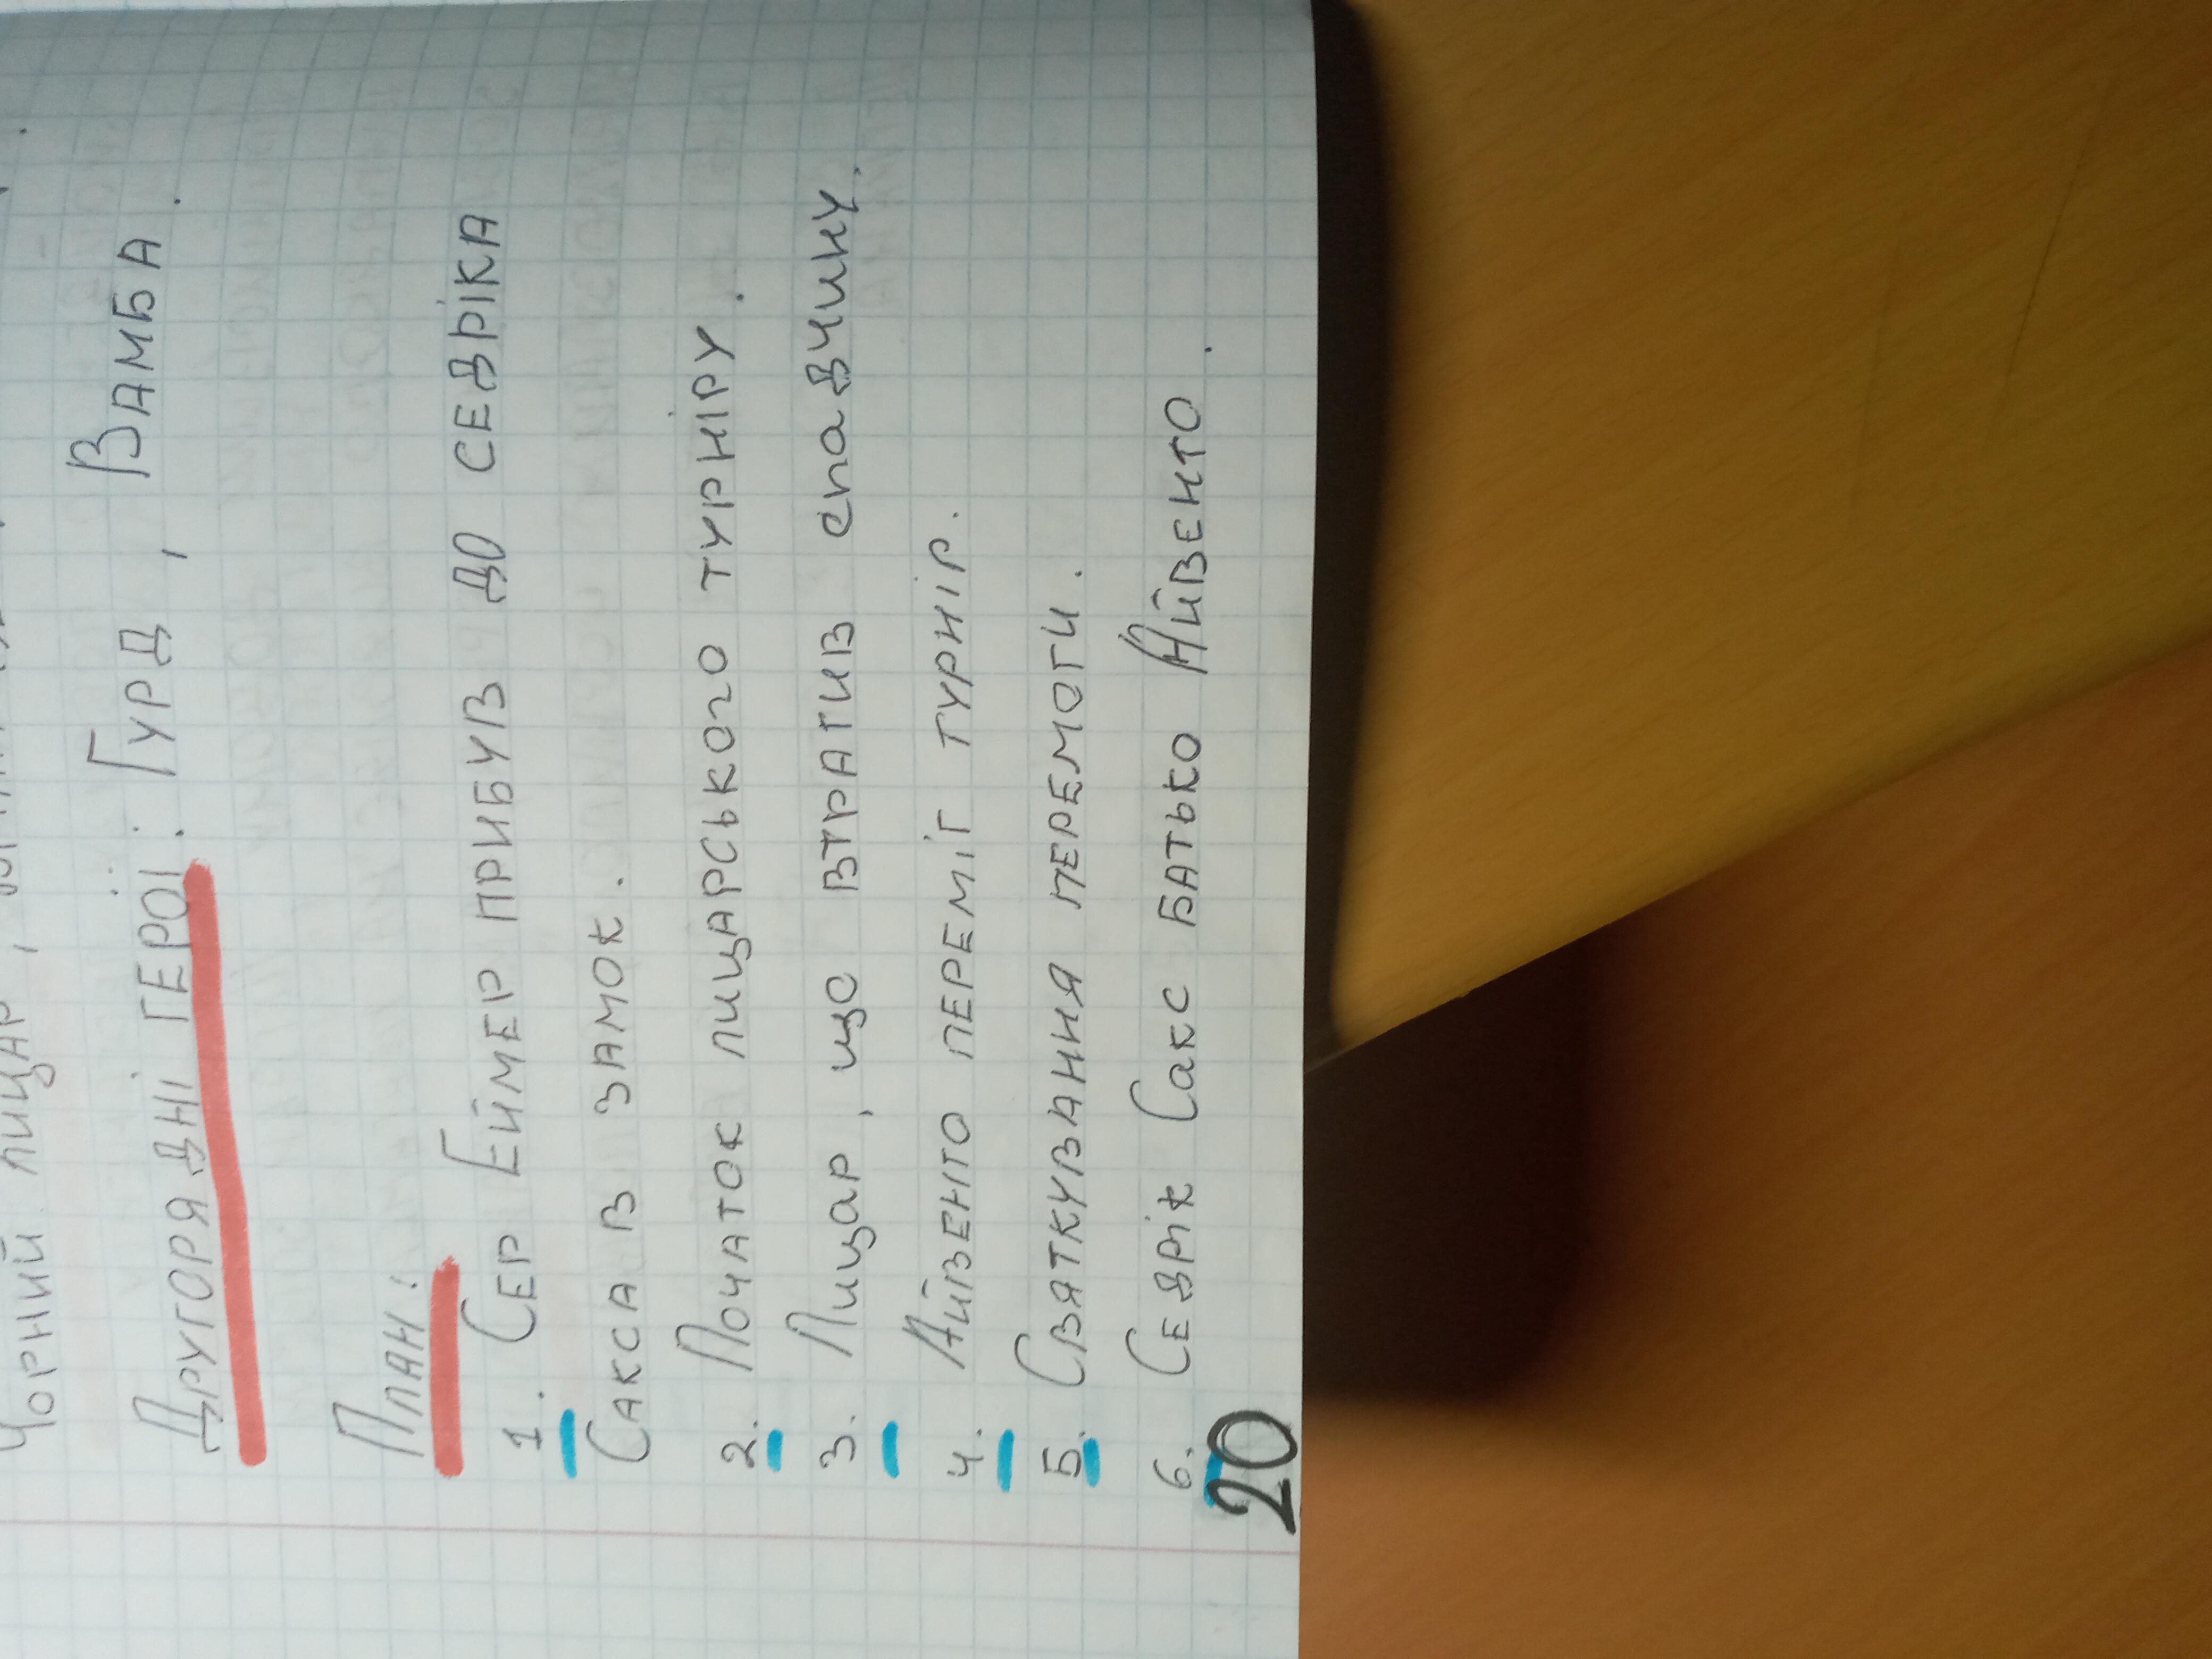 Чорний лицар,
Другорядні герої: Гурд, Вамба.
План:
1. Сер Еймер прибув до Седріка
Сакса в замок.
2. Початок лицарського турніру.
3. Лицар, що втратив спадчину.
4. Айвенго переміг турнір.
5. Святкування перемоги.
6. Седрік Сакс батько Айвенго.
20